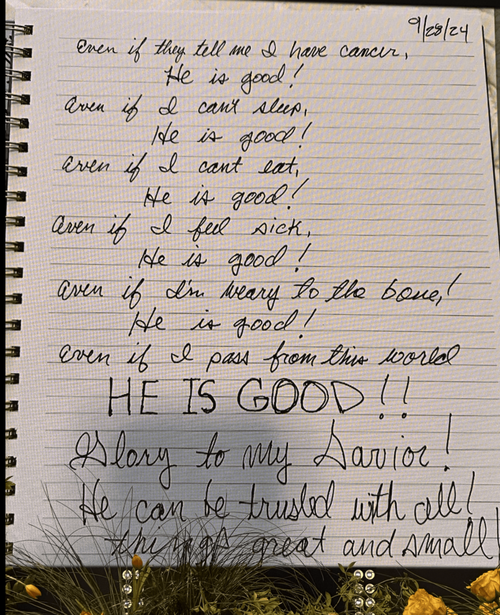 9/28/24
Even if they tell me I have cancer,
He is good!
Even if I can't sleep,
He is good!
Even if I cant eat,
He is good!
Even if I feel sick,
He is good!
Even if I'm weary to the bone!
He is good!
Even if I pass from this world
HE IS GOOD!!
Glory to my Savior!
He can be trusted with all!
things great and small!